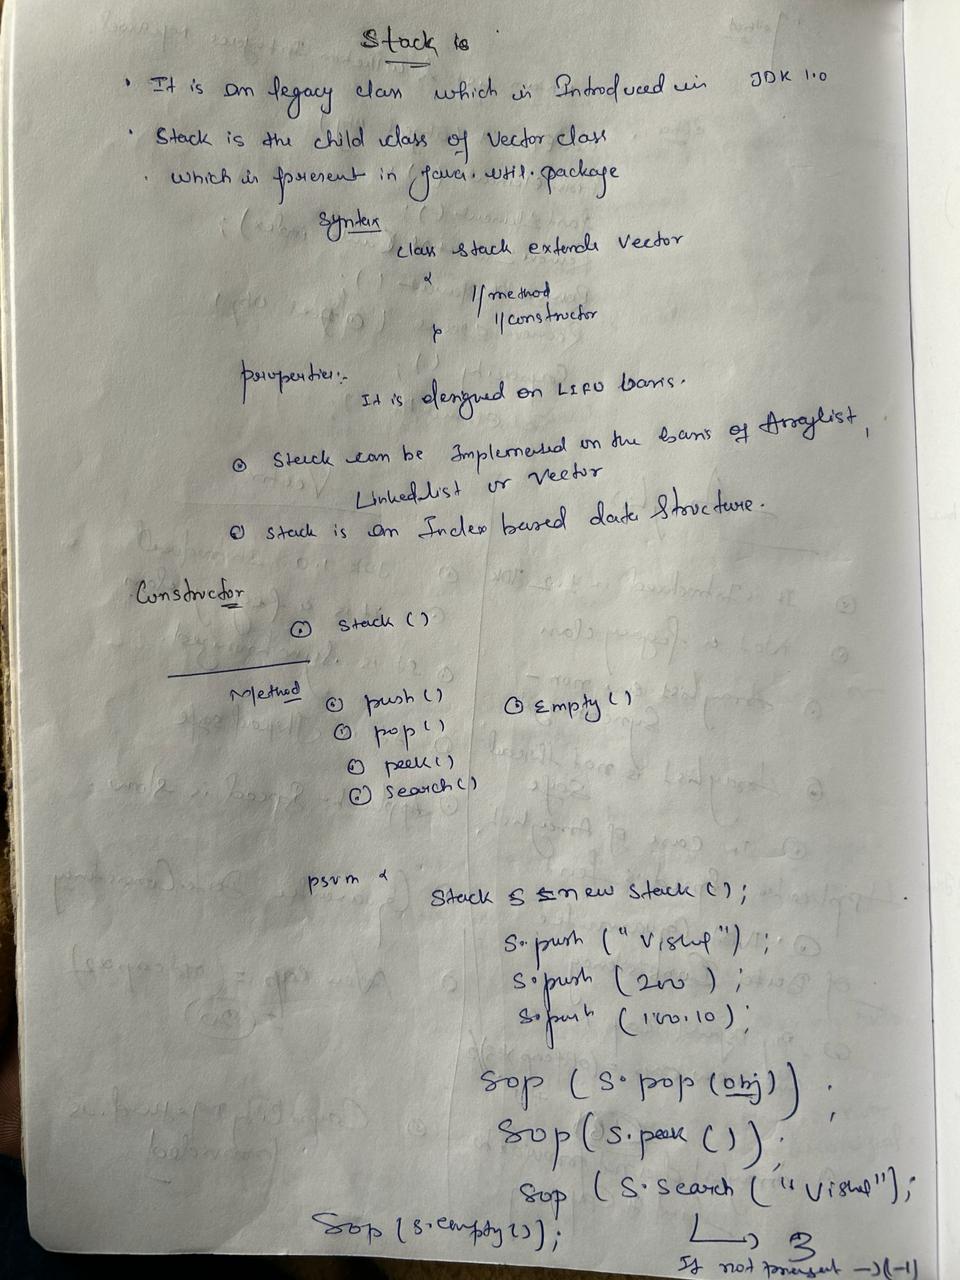 Stack is
• It is an legacy class which is Introduced in JDK 1.0
• Stack is the child class of Vector class
• which is present in java.util.package
Syntax
class stack extends vector
{
//method
//constructor
}
properties:-
It is designed on LIFO basis.
⊙ Stack can be Implemented on the basis of Arraylist,
Linkedlist or Vector
⊙ stack is an Index based data Structure.
Constructor
⊙ Stack ()
Method
⊙ push() ⊙ Empty()
⊙ pop()
⊙ peek()
⊙ Search()
psvm {
Stack S = new Stack ();
S.push ("Vishal");
S.push (200);
S.push (100.10);
Sop (S.pop(obj));
Sop(S.peek ());
Sop (S.Search ("Vishal");
Sop (S.empty());
↳ 3
If not present → (-1)